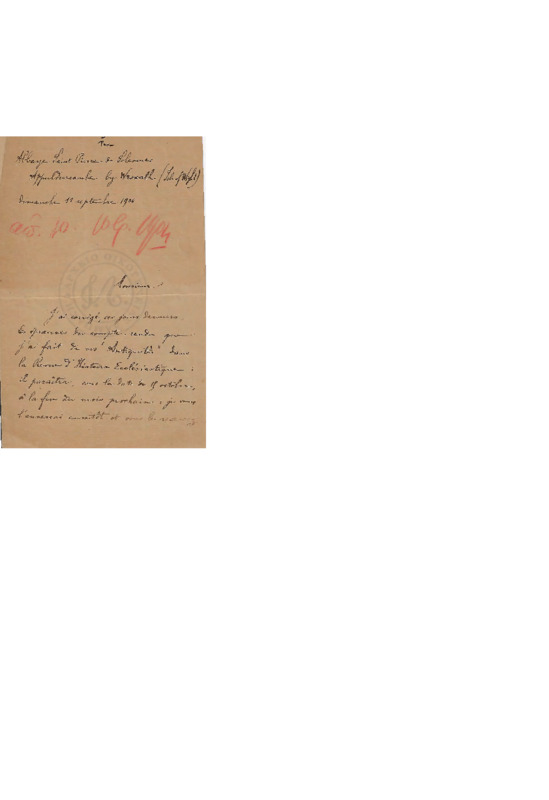 Pax
Abbaye Saint Pierre de Solesmes
Appuldurcombe by Wroxall (Isle of Wight)
dimanche 11 septembre 1904
Monsieur
J'ai corrigé, ces jours derniers
les épreuves du compte-rendu que
j'ai fait de vos "Antiquités" dans
la Revue d'Histoire Ecclésiastique ;
il paraîtra, avec la date de 15 octobre,
à la fin du mois prochain ; je vous
l'enverrai aussitôt et vous